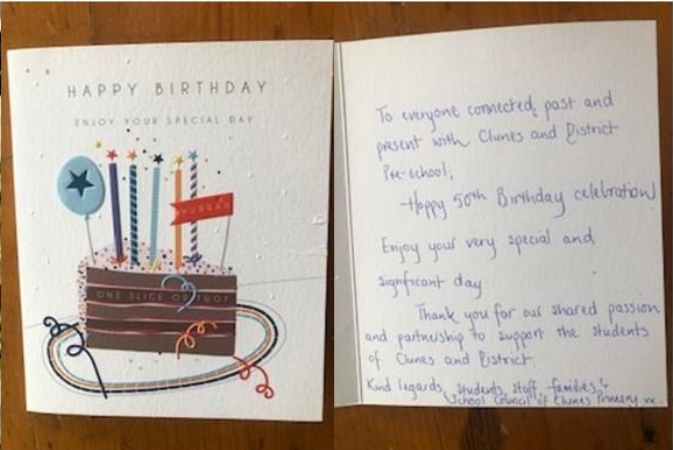 HAPPY BIRTHDAY
ENJOY YOUR SPECIAL DAY
HURRAH
ONE SLICE OR TWO?
To everyone connected, past and
present with Clunes and District
Pre-school,
Happy 50th Birthday celebration
Enjoy your very special and
significant day.
Thank you for our shared passion
and partnership to support the students
of Clunes and District.
Kind regards, students, staff, families &
School Council of Clunes Primary